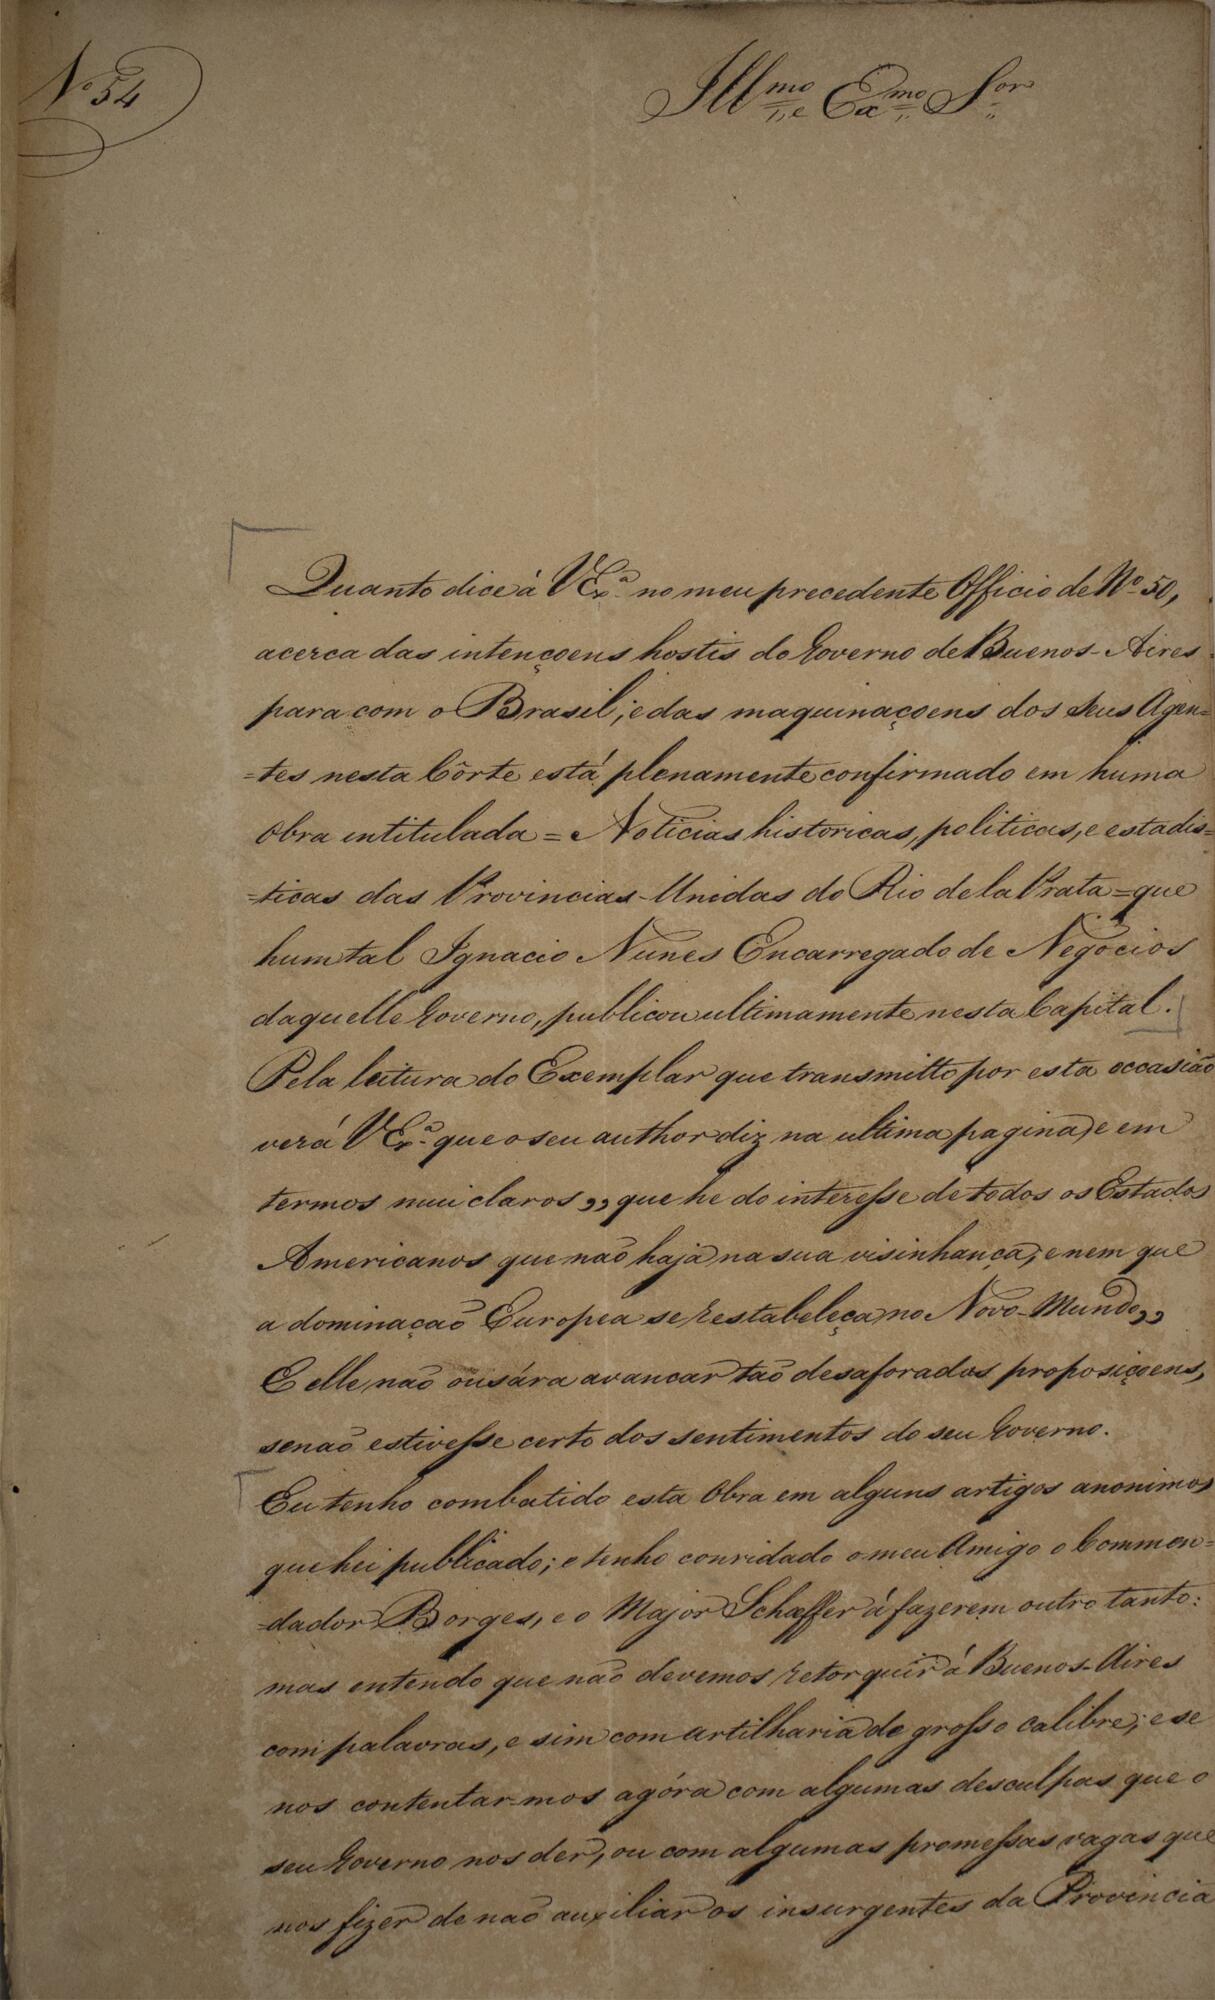 Nº 54
Illmo e Exmo Sor
Quanto dice à VExª no meu precedente Officio de Nº 50,
acerca das intençoens hostis do Governo de Buenos-Aires
para com o Brasil, e das maquinaçoens dos seus Agen=
=tes nesta Côrte está plenamente confirmado em huma
Obra intitulada = Noticias historicas, politicas, e estadis=
=ticas das Provincias-Unidas do Rio de la Prata = que
hum tal Ignacio Nunes Encarregado de Negocios
daquelle Governo, publicou ultimamente nesta Capital.
Pela leitura do Exemplar que transmitto por esta occasião
verá VExª que o seu author diz na ultima pagina, e em
termos mui claros „ que he do interesse de todos os Estados
Americanos que não haja na sua visinhança, e nem que
a dominação Europea se restabeleça no Novo-Mundo „
E elle não ousára avancar tão desaforadas proposiçoens,
senão estivesse certo dos sentimentos do seu Governo.
Eu tenho combatido esta Obra em alguns artigos anonimos
que hei publicado; e tenho convidado o meu Amigo o Commen=
=dador Borges, e o Major Schæffer à fazerem outro tanto:
mas entendo que não devemos retorquir à Buenos-Aires
com palavras, e sim com artilharia de grosso calibre; e se
nos contentar-mos agóra com algumas desculpas que o
seu Governo nos der, ou com algumas promessas vagas que
nos fizer de não auxiliar os insurgentes da Provincia